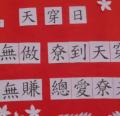 天穿日
無做 尞到天穿
無賺 總愛尞